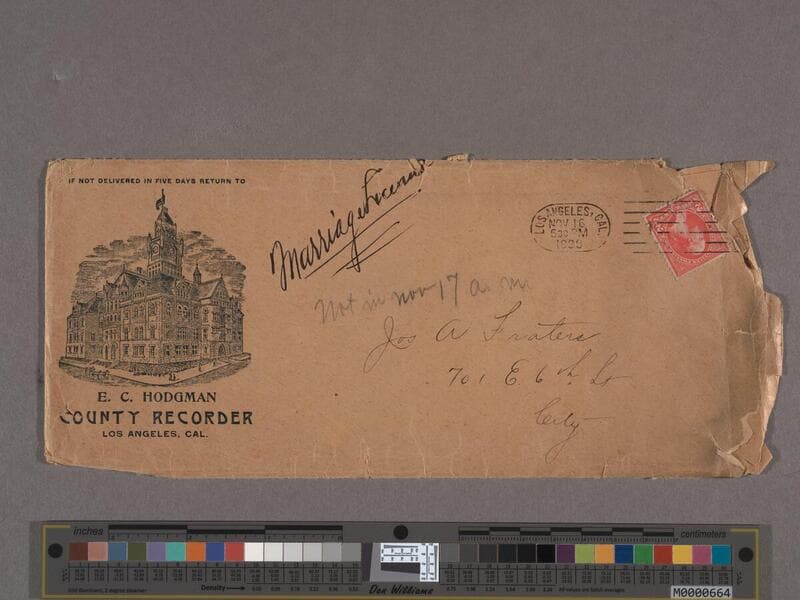 IF NOT DELIVERED IN FIVE DAYS RETURN TO
E. C. HODGMAN
COUNTY RECORDER
LOS ANGELES, CAL.
Marriage
LOS ANGELES, CAL.
NOV 16
5 30 PM
1899
Not in nov 17 a. m.
Jos A Fraters
701 E. 6th St
City
inches
centimeters
Density
Don Williams
M0000664